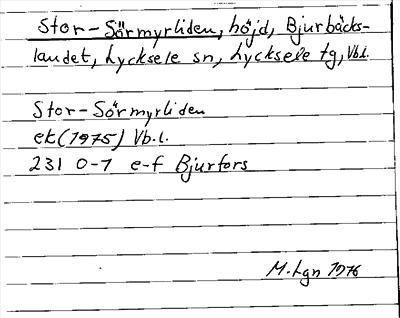 Stor-Sörmyrliden, höjd, Bjurbäcks-
landet, Lycksele sn, Lycksele tg, Vb.l.
Stor-Sörmyrliden
ek (1975) Vb.l.
231 0-1 e-f Bjurfors
M. Lgn 1976